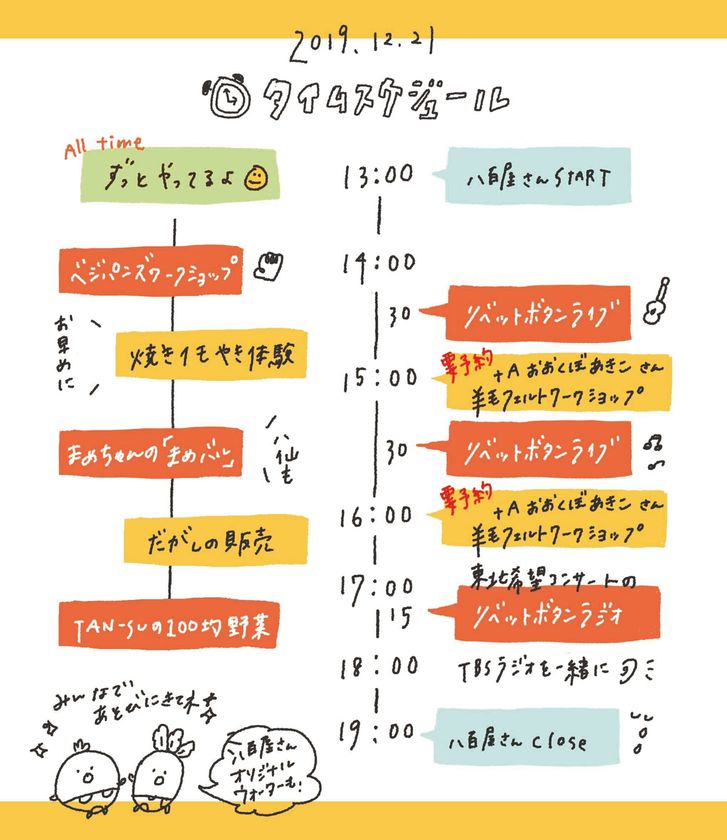 2019.12.21
タイムスケジュール
All time
ずっとやってるよ
ベジパンズワークショップ
お早めに
焼きイモやき体験
まめちゃんの「まめバル」
八仙も
だがしの販売
TAN-SUの100均野菜
みんなで
あそびにきてネ
八百屋さん
オリジナル
ウォーターも!
13:00
八百屋さんSTART
14:00
30
リベットボタンライブ
15:00
要予約
+A おおくぼあきこさん
羊毛フェルトワークショップ
30
リベットボタンライブ
16:00
要予約
+A おおくぼあきこさん
羊毛フェルトワークショップ
17:00
東北希望コンサートの
15
リベットボタンラジオ
18:00
TBSラジオを一緒に
19:00
八百屋さんclose